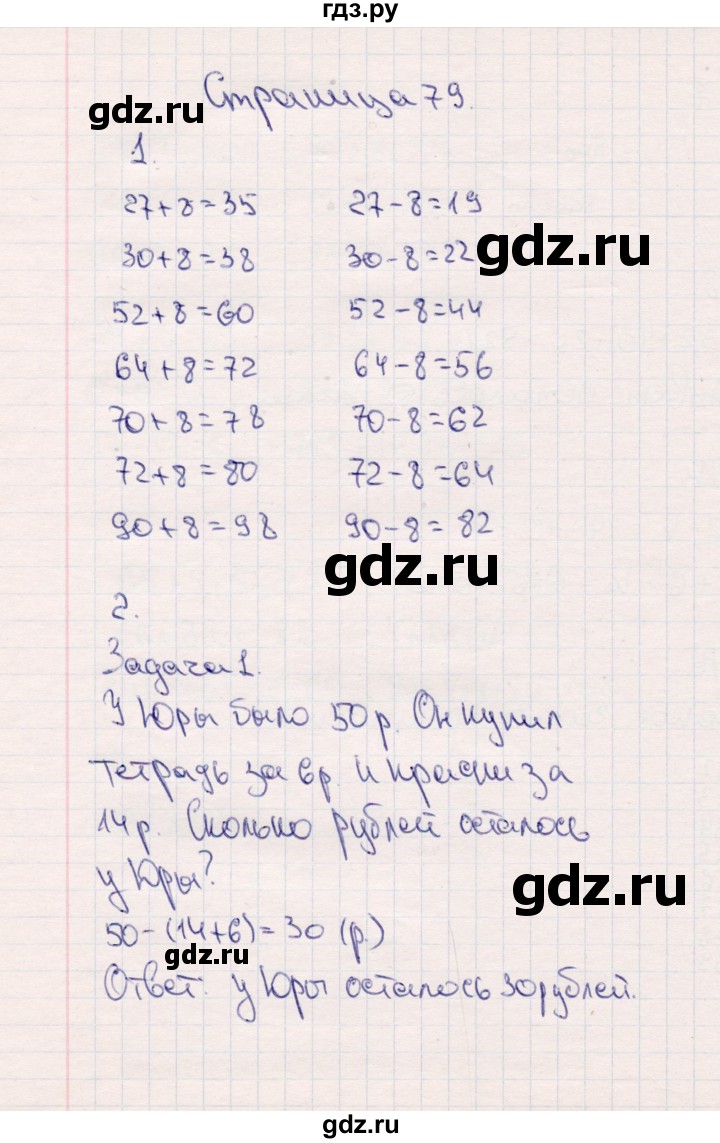 гдз.ру
Страница 79.
gdz.ru
1.
27+8=35 27-8=19
30+8=38 30-8=22
gdz.ru
52+8=60 52-8=44
64+8=72 64-8=56
70+8=78 70-8=62
72+8=80 72-8=64
90+8=98 90-8=82
gdz.ru
2.
Задача 1.
У Юры было 50 р. Он купил
тетрадь за 6 р. и краски за
14 р. Сколько рублей осталось
у Юры?
gdz.ru
50-(14+6)=30 (р.)
gdz.ru
Ответ: у Юры осталось 30 рублей.
gdz.ru